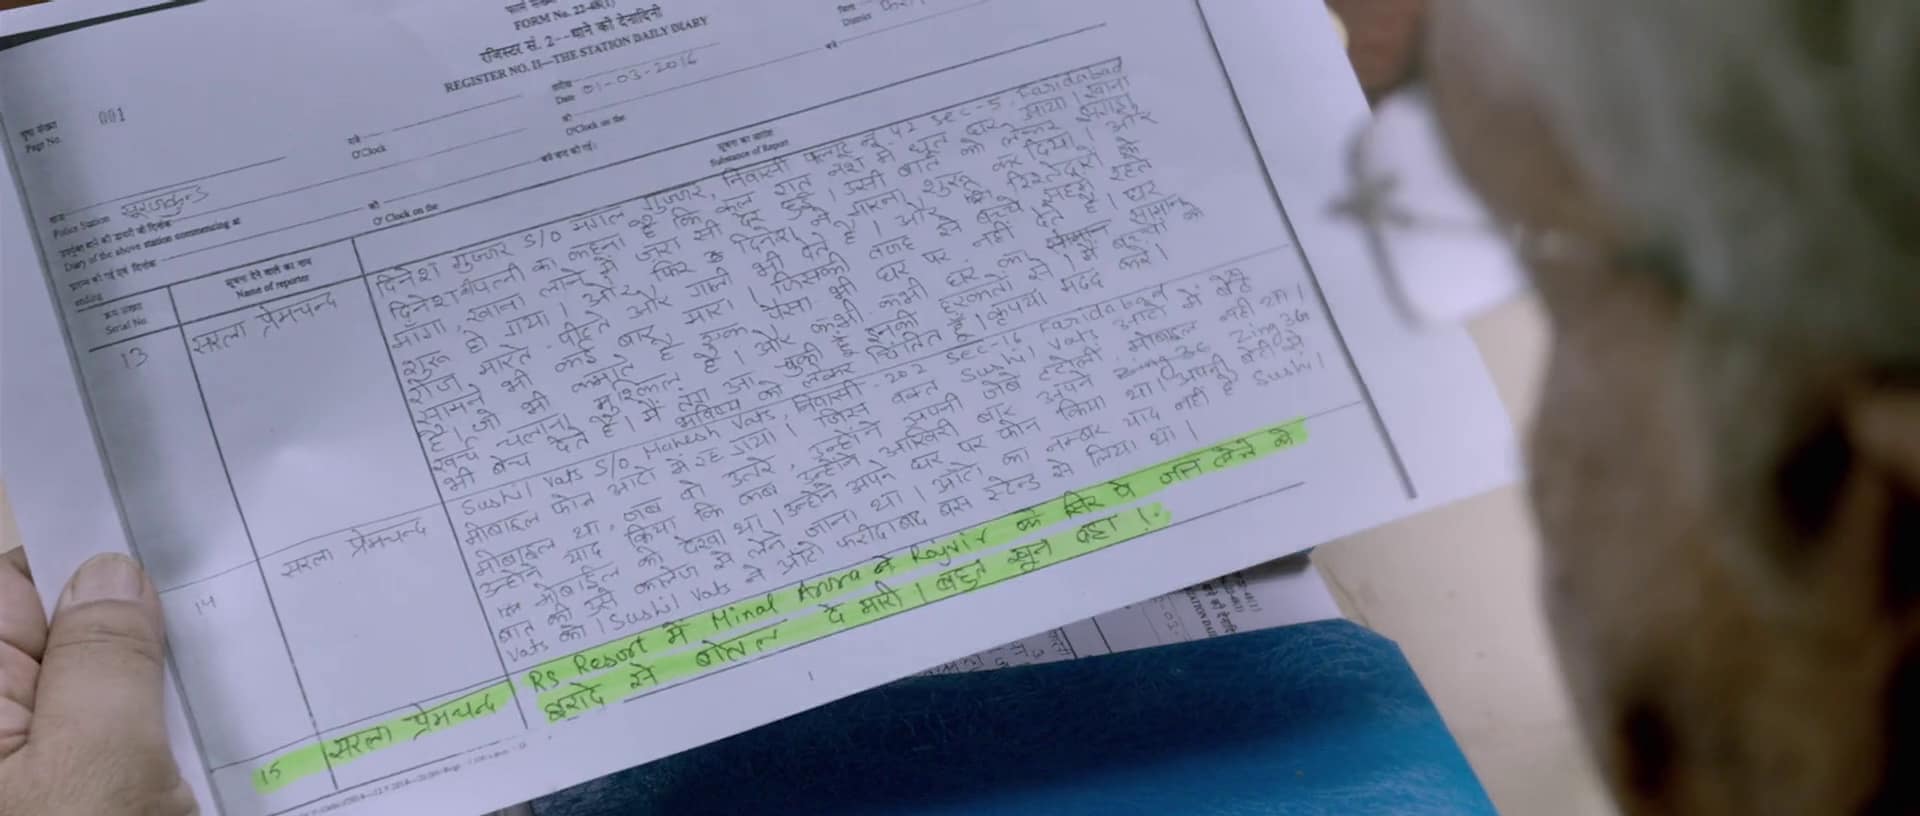 FORM No. 22-48(1)
रजिस्टर सं. 2—थाने की दैनादिनी
REGISTER NO. II—THE STATION DAILY DIARY
District
Date 01-03-2016
Page No. 001
O'Clock
O'Clock on the
Police Station सूरजकुन्ड
Diary of the above station commencing at
O'Clock on the
ending
Serial No.
सूचना देने वाले का नाम
Name of reporter
सूचना का सारांश
Substance of Report
13
सरला प्रेमचन्द
दिनेश गुज्जर S/O मंगल गुज्जर, निवासी फ्लाट नं. 42 Sec-5, Faridabad
दिनेश की पत्नी का कहना है कि कल रात नशे में धुत घर आया। खाना
माँगा, खाना लाने में जरा सी देर हुई। उसी बात को लेकर झगड़ा
शुरू हो गया। और फिर दिनेश ने मारना शुरू कर दिया। और
रोज मारते-पीटते और गाली भी देते है। और रिश्तेदारों के
सामने भी कई बार मारा। जिसकी वजह से बच्चे सहमे रहते
है। जो भी कमाते है एक पैसा भी घर पर नहीं देते है। घर
खर्च चलाना मुश्किल है। और कभी-कभी घर का सामान
भी बेच देते है। मैं तंग आ चुकी हूँ इनकी हरकतों से। मैं बच्चों के
भविष्य को लेकर चिंतित हूँ। कृपया मदद करें।
14
सरला प्रेमचन्द
Sushil Vats S/O Mahesh Vats, निवासी-202 Sec-16 Faridabad
मोबाइल फोन ऑटो में रह गया। जिस वक्त Sushil Vats ऑटो में बैठे
मोबाइल था, जब वो उतरे, उन्होंने अपनी जेबें टटोली मोबाइल नहीं था।
उन्होंने याद किया कि कब उन्होंने आखिरी बार अपने Zing 3G
मोबाईल को देखा था। उन्होंने अपने घर पर फोन किया था। अपनी बेटी से
बात की उसे कालेज से लेने जाना था। ऑटो का नम्बर याद नहीं है Sushil
Vats को। Sushil Vats ने ऑटो फरीदाबाद बस स्टेन्ड से लिया था।
15
सरला प्रेमचन्द
RS Resort में Minal Arora ने Rajvir के सिर पे जान लेने के
इरादे से बोतल दे मारी। बहुत खून बहा।
1